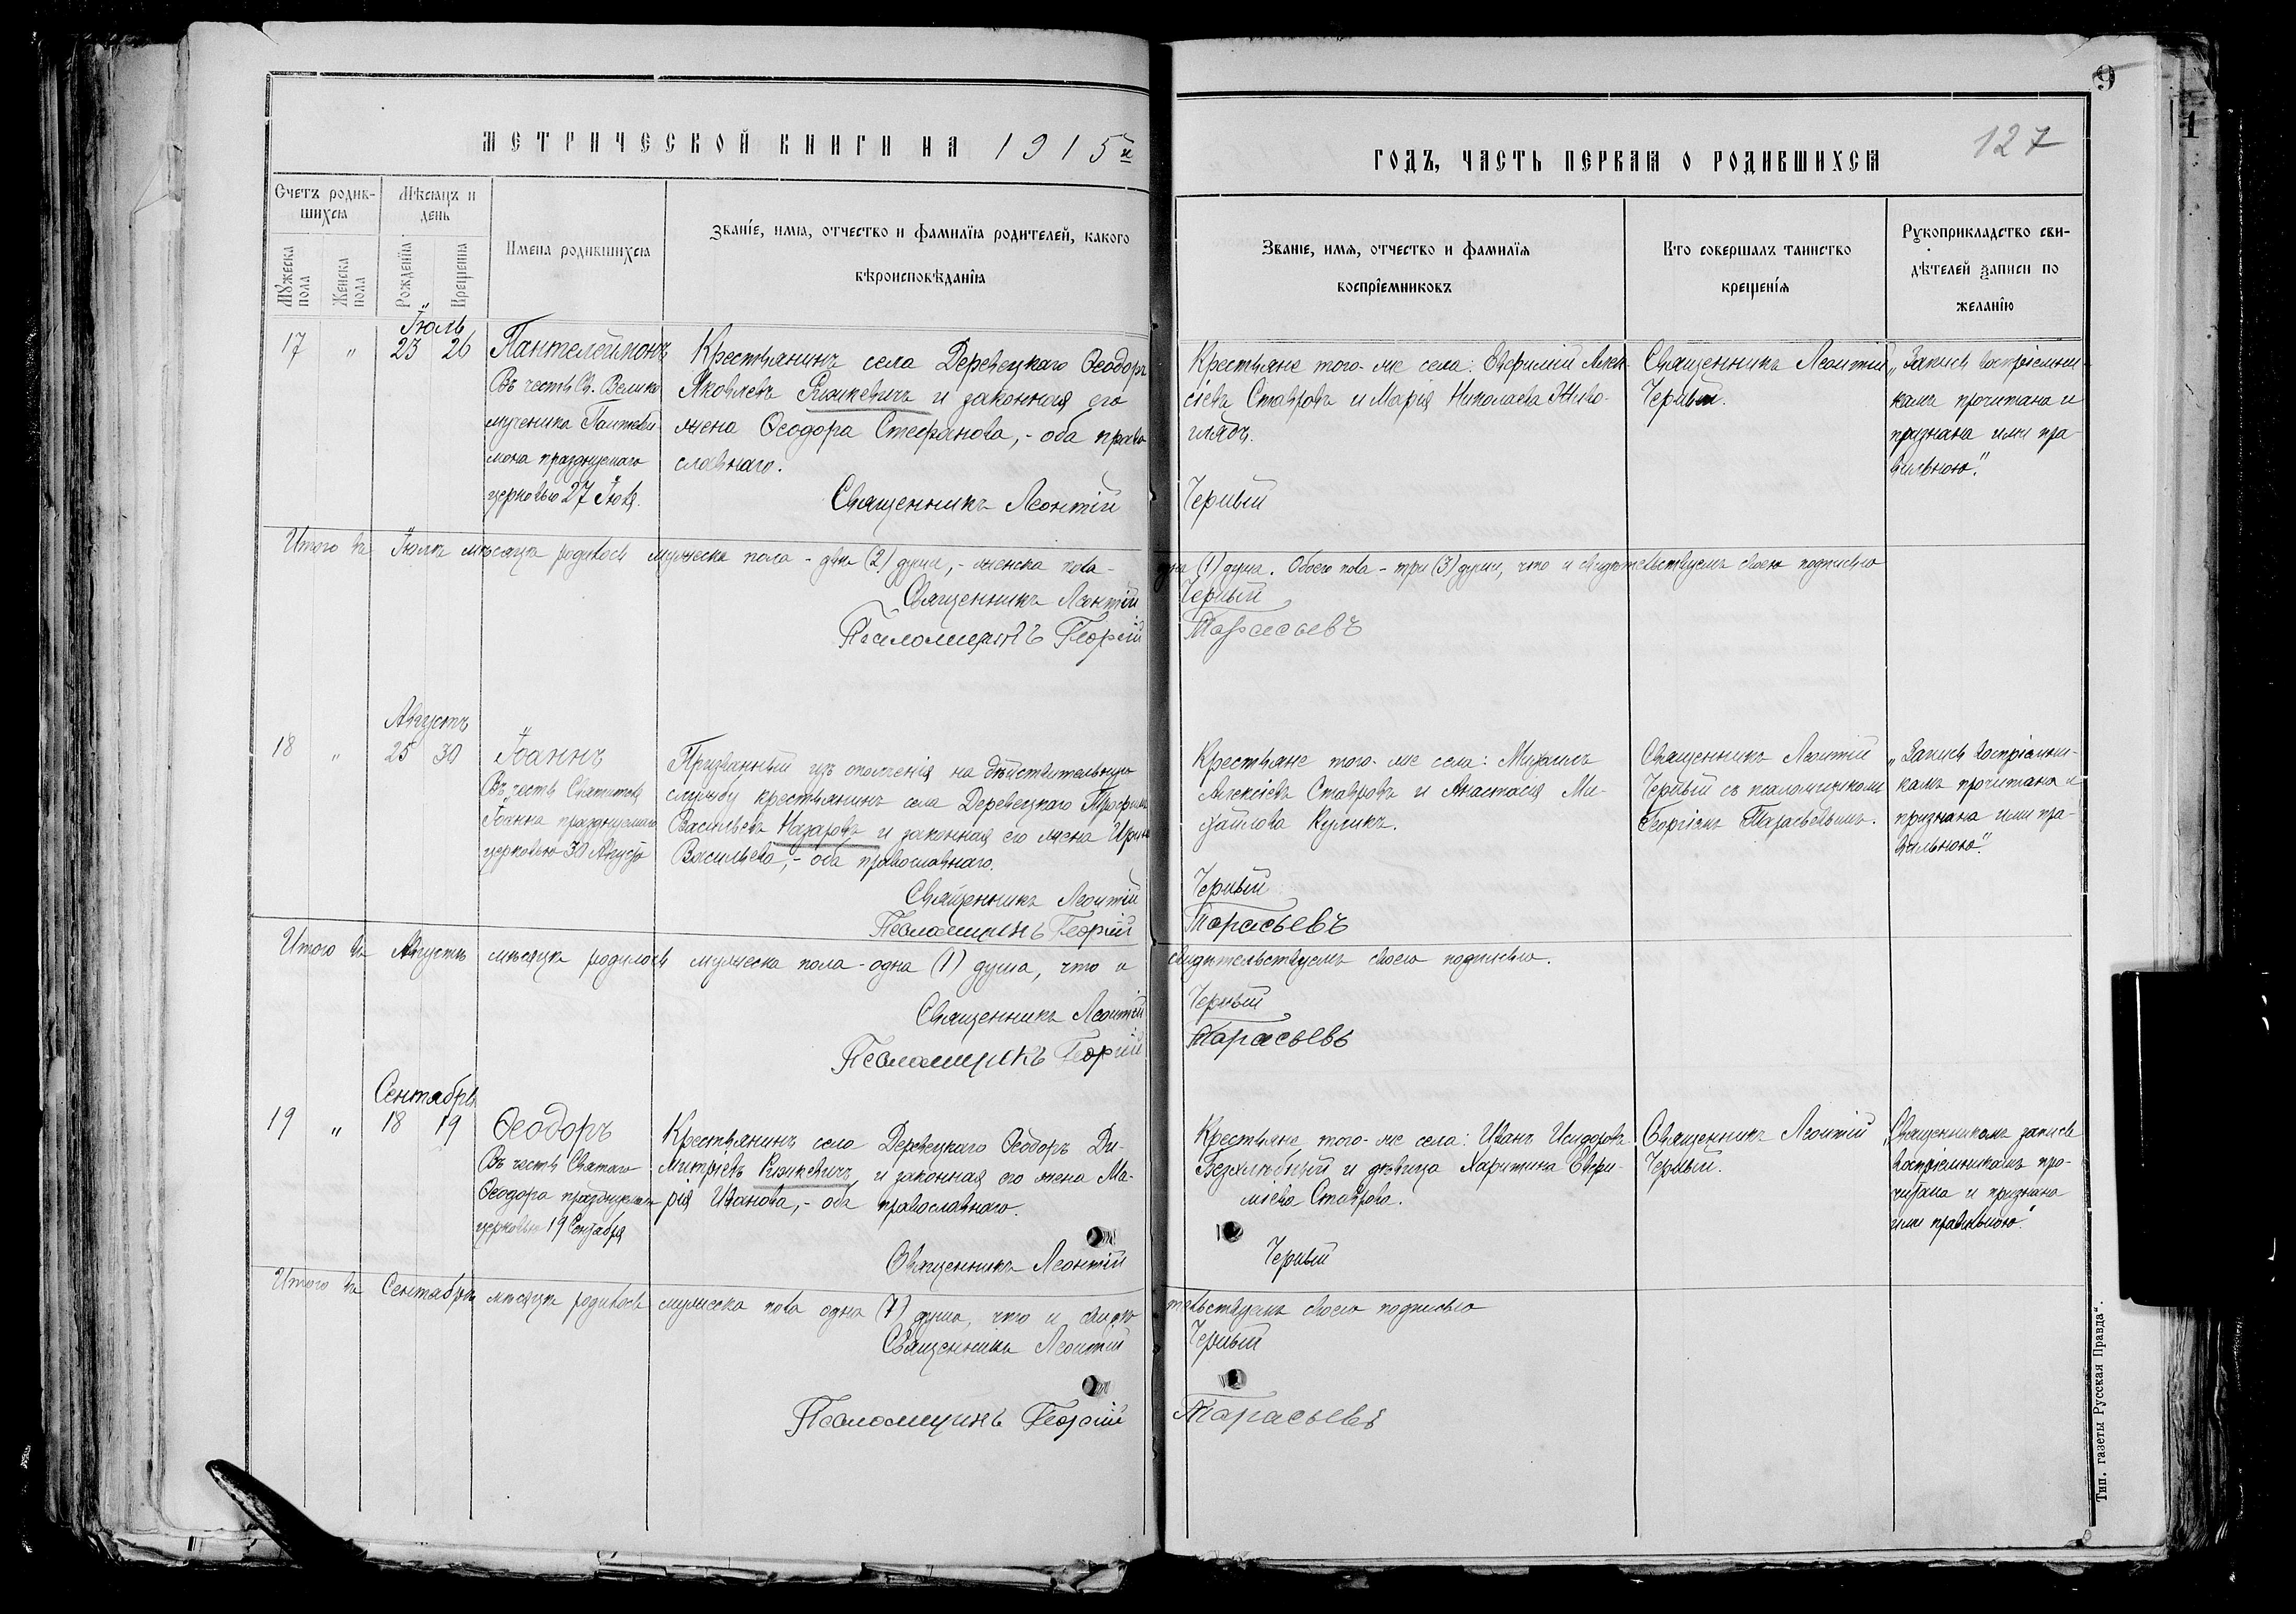 9
127
МЕТРИЧЕСКОЙ КНИГИ НА 1915й
ГОДЪ, ЧАСТЬ ПЕРВАЯ О РОДИВШИХСЯ
Счетъ родив-
шихся
Мужеска пола
Женска пола
Мѣсяцъ и
день
Рожденія
Крещенія
Имена родившихся
Званіе, имя, отчество и фамилія родителей, какого
вѣроисповѣданія
Званіе, имя, отчество и фамилія
воспріемниковъ
Кто совершалъ таинство
крещенія
Рукоприкладство сви-
дѣтелей записи по
желанію
Іюль
17 " 23 26
Пантелеимонъ
Въ честь Св. Велико
мученика Пантелеи-
мона празднуемаго
церковью 27 Іюля.
Крестьянинъ села Деревецкаго Ѳеодоръ
Яковлевъ и законная его
жена Ѳеодора Стефанова, - оба право
славнаго.
Священникъ Леонтій
Крестьяне того-же села: Евфимій Алек-
сіевъ Ставровъ и Марія Николаева Живо-
глядъ.
Черный
Священникъ Леонтій
Черный.
„Запись воспріемни-
камъ прочитана и
признана ими пра-
вильною".
Итого въ Іюлѣ мѣсяцѣ родилось мужеска пола - двѣ (2) души, - женска пола -
одна (1) душа. Обоего пола - три (3) души, что и свидѣтельствуемъ своею подписью
Священникъ Леонтій Черный
Псаломщикъ Георгій Тарасьевъ
Августъ
18 " 25 30
Іоаннъ
Въ честь Святителя
Іоанна празднуемаго
церковью 30 Августа
Призванный изъ ополченія на дѣйствительную
службу крестьянинъ села Деревецкаго Трофимъ
Васильевъ Назаровъ и законная его жена Ирина
Васильева, - оба православнаго.
Священникъ Леонтій
Псаломщикъ Георгій
Крестьяне того-же села: Михаилъ
Алексіевъ Ставровъ и Анастасія Ми-
хайлова Куликъ.
Черный
Тарасьевъ
Священникъ Леонтій
Черный съ псаломщикомъ
Георгіемъ Тарасьевымъ.
„Запись воспріемни-
камъ прочитана и
признана ими пра-
вильною".
Итого въ Августѣ мѣсяцѣ родилось мужеска пола - одна (1) душа, что и
свидѣтельствуемъ своею подписью.
Священникъ Леонтій Черный
Псаломщикъ Георгій Тарасьевъ
Сентябрь
19 " 18 19
Ѳеодоръ
Въ честь Святаго
Ѳеодора празднуемаго
церковью 19 Сентября
Крестьянинъ села Деревецкаго Ѳеодоръ Ди-
митріевъ и законная его жена Ма-
рія Иванова, - оба православнаго.
Священникъ Леонтій
Крестьяне того-же села: Иванъ Исидоровъ
Безхлѣбный и дѣвица Харитина Евфи-
міева Ставрова.
Черный
Священникъ Леонтій
Черный.
„Священникомъ запись
воспріемникамъ про-
читана и признана
ими правильною".
Итого въ Сентябрѣ мѣсяцѣ родилось мужеска пола одна (1) душа, что и свидѣ
тельствуемъ своею подписью
Священникъ Леонтій Черный
Псаломщикъ Георгій Тарасьевъ
Тип. газеты Русская Правда".